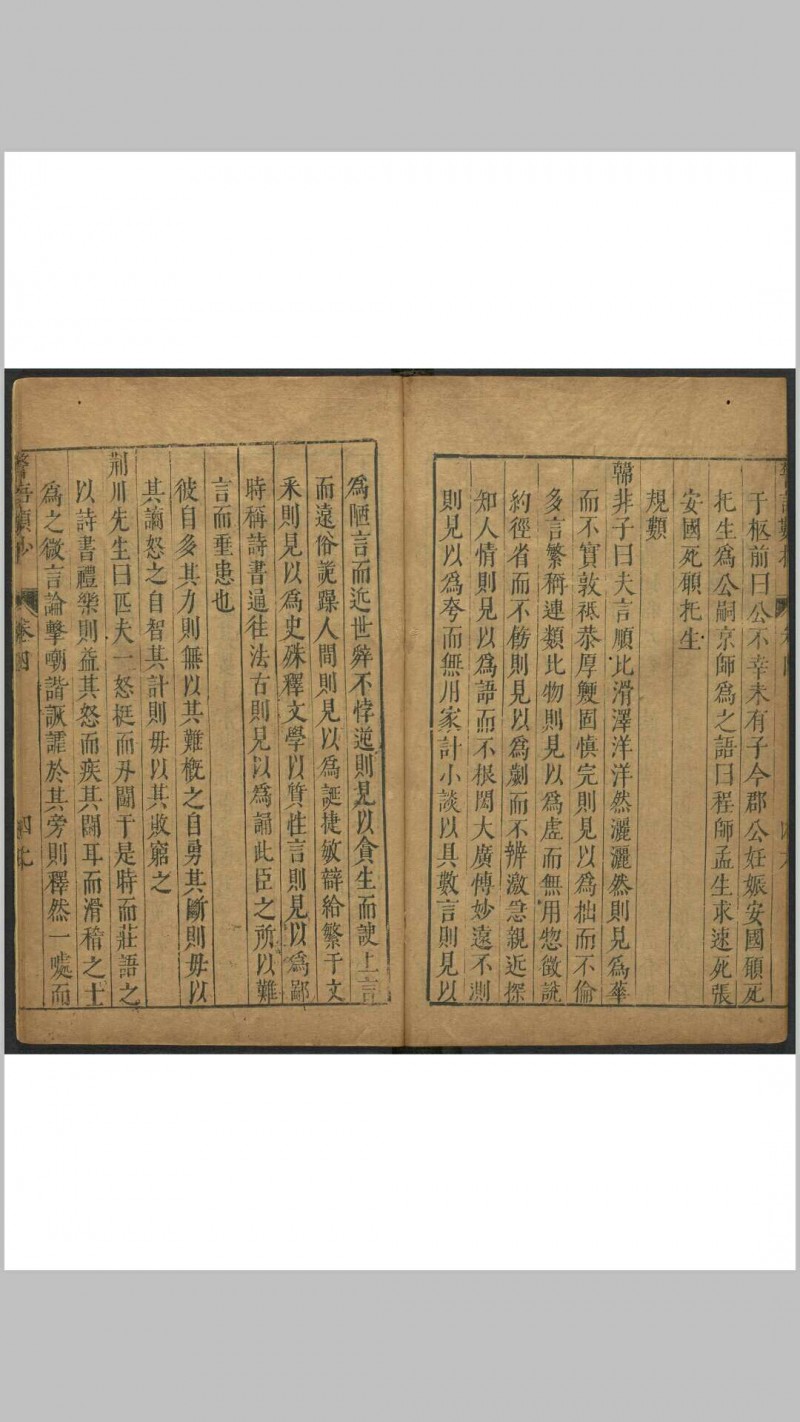 于柩前曰公不幸未有子今郡公妊娠安國願死
托生為公嗣京師為之語曰程師孟生求速死張
安國死願托生
規類
韓非子曰夫言順比滑澤洋洋然灑灑然則見為華
而不實敦祗恭厚鯁固慎完則見以為拙而不倫
多言繁稱連類比物則見以為虛而無用惣微說
約徑省而不傍則見以為劌而不辨激急親近探
知人情則見以為語而不根閎大廣博妙遠不測
則見以為夸而無用家計小談以具數言則見以
為陋言而近世辤不悖逆則見以貪生而諛上言
而遠俗詭躁人間則見以為誕捷敏辯給繁于文
采則見以為史殊釋文學以質性言則見以為鄙
時稱詩書通往法古則見以為誦此臣之所以難
言而重患也
彼自多其力則無以其難概之自勇其斷則毋以
其謫怒之自智其計則毋以其敗窮之
荊川先生曰匹夫一怒挺而另鬬于是時而莊語之
以詩書禮樂則益其怒而疾其鬬耳而滑稽之士
為之微言論擊嘲諧詼謔於其旁則釋然一噱而
卷四
四七